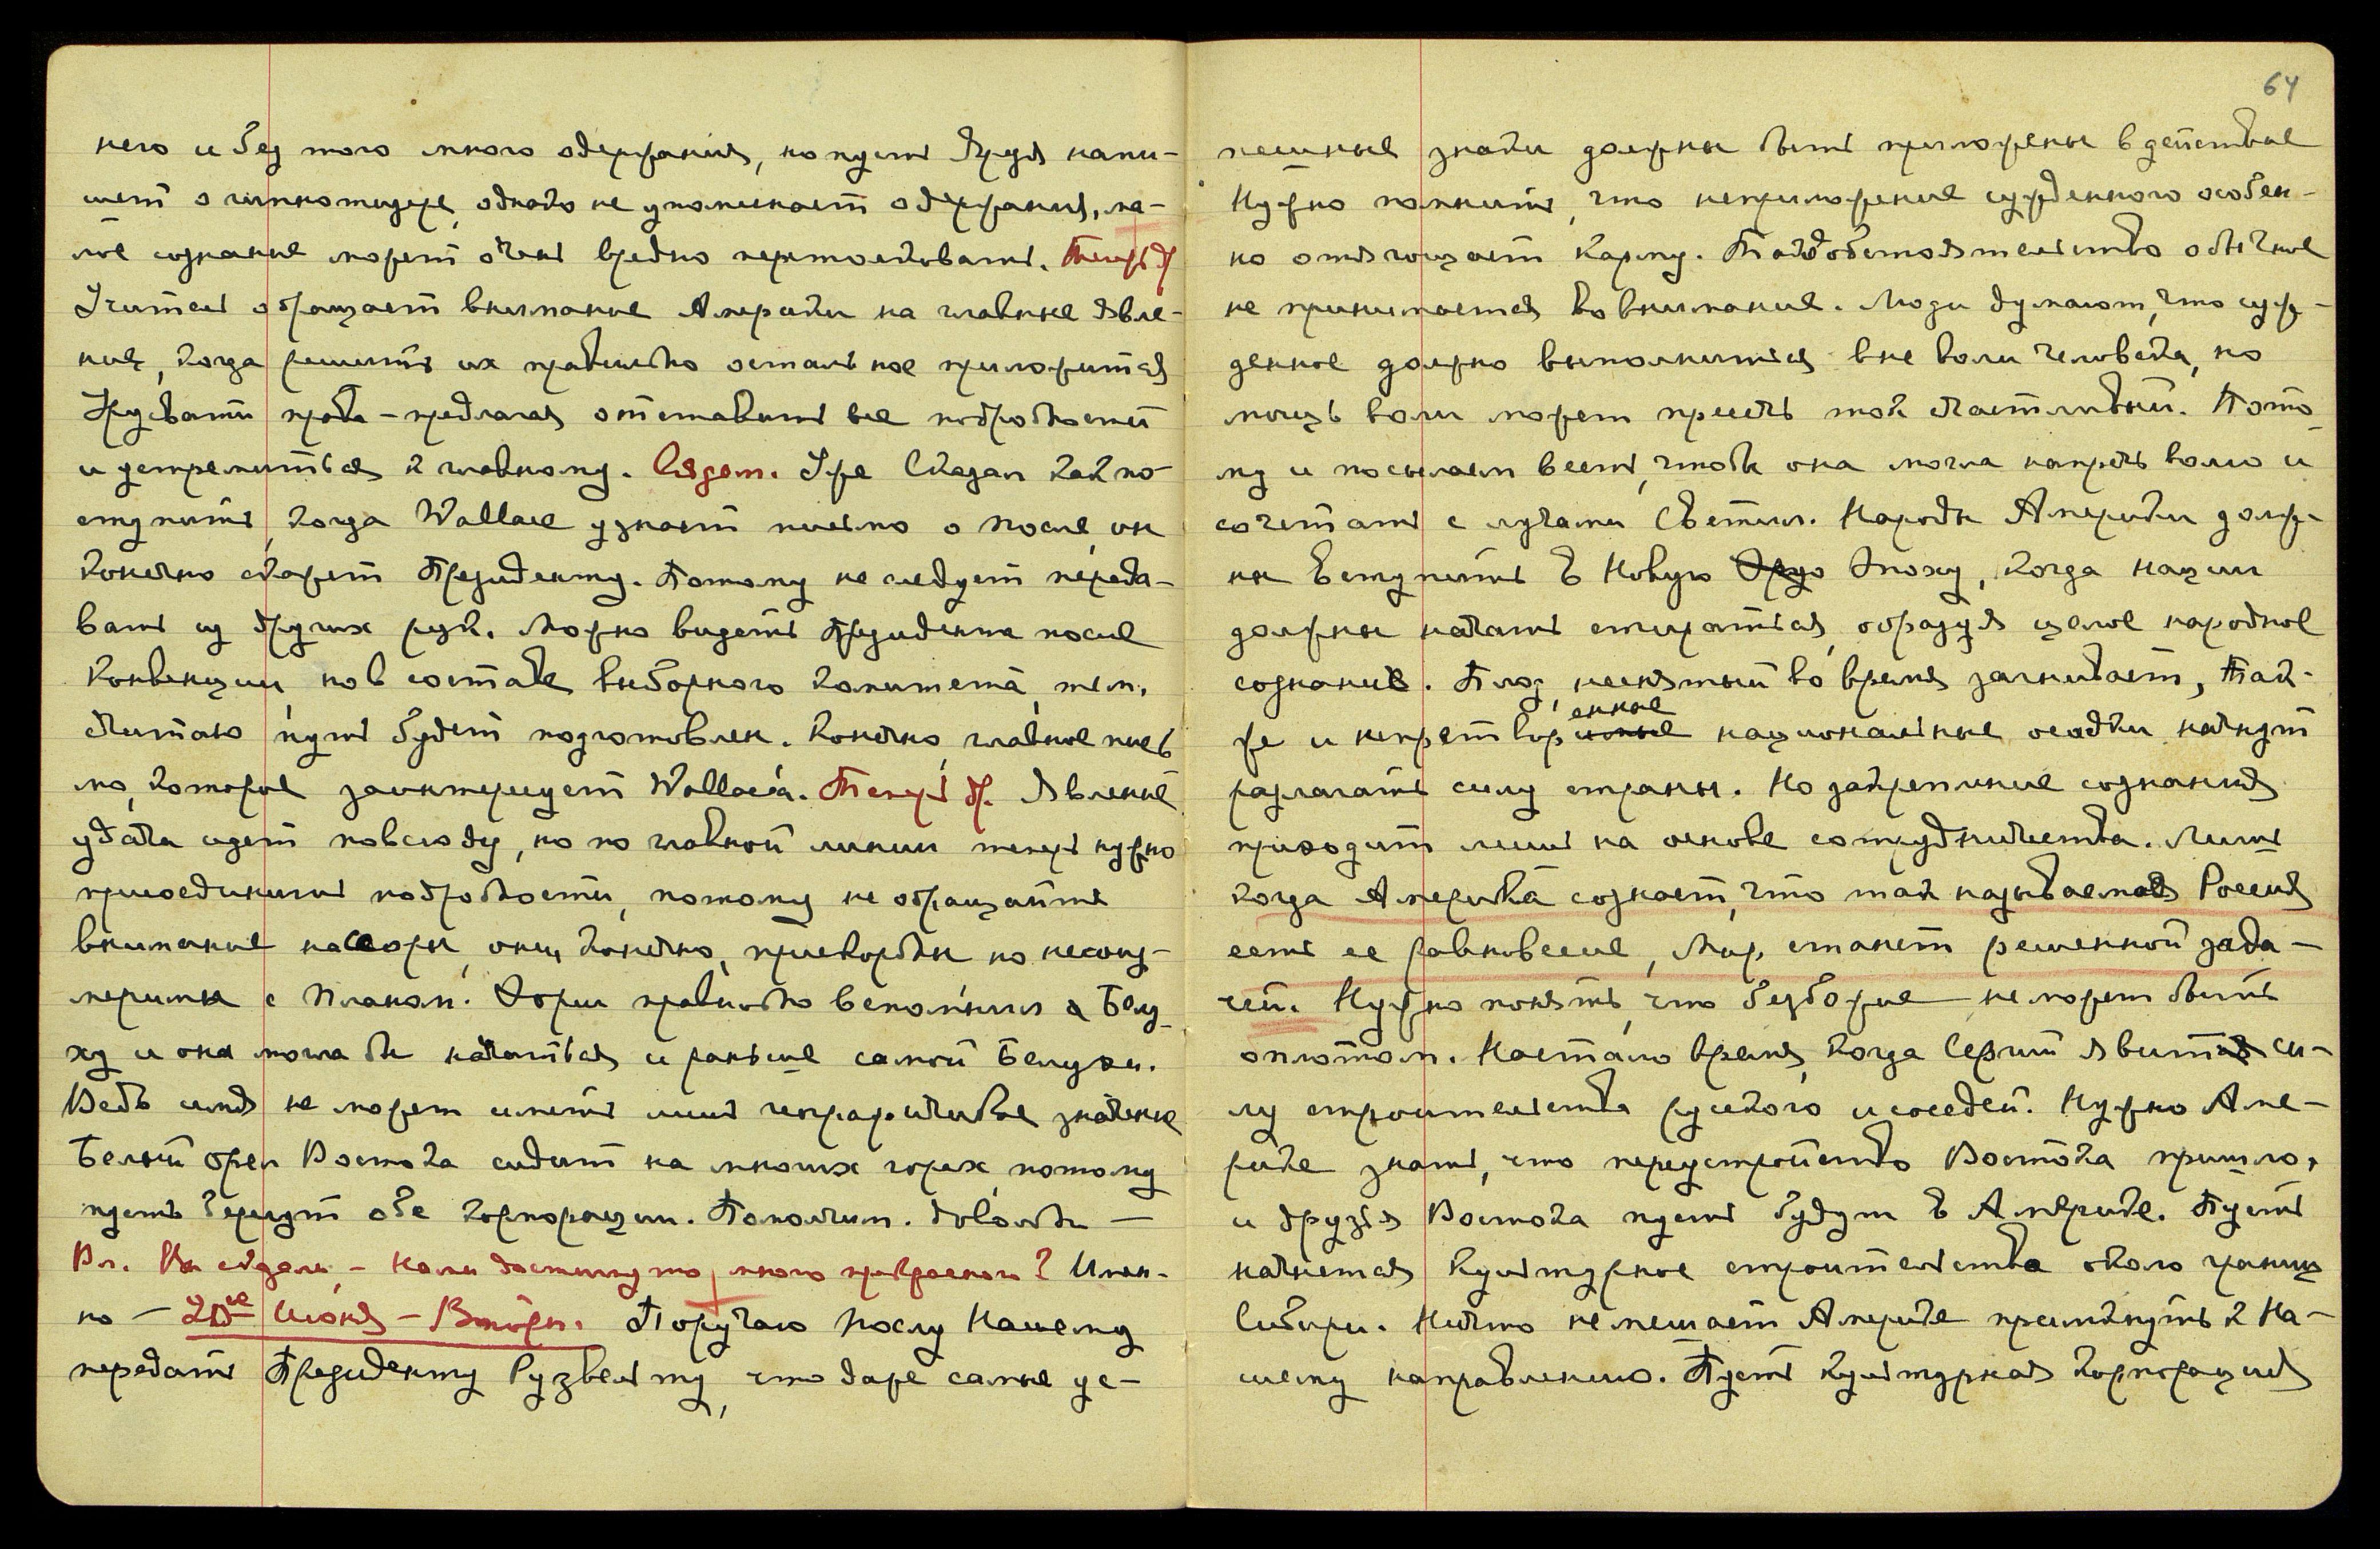 него и без того много одержания, но пусть Яруя напи-
шет о гипнотизере, однако не упоминает одержания, ма-
лое сознание может очень вредно перетолковать. Теперь др
Учитель обращает внимание Америки на главные явле-
ния, когда решить их правильно остальное приложится
предлагая отставить все подробности
и устремиться к главному. Сядем. Уже Сказал как по-
ступить, когда Wallace узнает письмо о После, он
конечно скажет Президенту. Потому не следует переда-
вать из других рук. Можно видеть Президента после
Конвенции, но в составе выборного комитета, тем,
считаю, путь будет подготовлен. Конечно, главное пись
мо, которое заинтересует Wallace'а. Теперь др. Явление
удачи идет повсюду, но по главной линии теперь нужно
присоединить подробности, потому не обращайте
внимание на ссоры, они, конечно, прискорбны но несоиз-
меримы с Планом. Хорш правильно вспомнил о Белу-
ху и она могла бы начаться и раньше самой Белухи.
Ведь имя не может иметь лишь географическое значение
Белый орел Востока сидит на многих горах, потому
пусть берегут обе корпорации. Помолчим. Довольно —
Вл. Вы сказали, – Нами достигнуто много прекрасного? Имен-
но – 20ое Июня – Вторн. Поручаю Послу Нашему
передать Президенту Рузвельту, что даже самые ус-
64
пешные знаки должны быть приложены в действие
Нужно помнить, что неприложение сужденного особен-
но отягощает Карму. Такое обстоятельство обычное
не принимается во внимание. Люди думают, что суж-
денное должно выполниться вне воли человека, но
мощь воли может пресечь ток счастливый. Пото-
му и посылаем весть, чтобы она могла напрячь волю и
сочетать с лучами Светил. Народы Америки долж-
ны вступить в Новую Эру Эпоху, когда нации
должны начать стираться, образуя целое народное
сознание. Плод, неснятый во время загнивает, Так-
же и непретворенные национальные осадки начнут
разлагать силу страны. Но закрепление сознания
приходит лишь на основе сотрудничества. Лишь
когда Америка сознает, что так называемая Россия
есть ее равновесие, Мир станет решенной зада-
чей. Нужно понять, что безбожие не может быть
оплотом. Настало время, когда Сергий явит си-
лу строительства русского и соседей. Нужно Аме-
рике знать, что переустройство Востока пришло,
и друзья Востока пусть будут в Америке. Пусть
начнется Культурное строительство около границ
Сибири. Ничто не мешает Америке примкнуть к На-
шему направлению. Пусть Культурная Корпорация